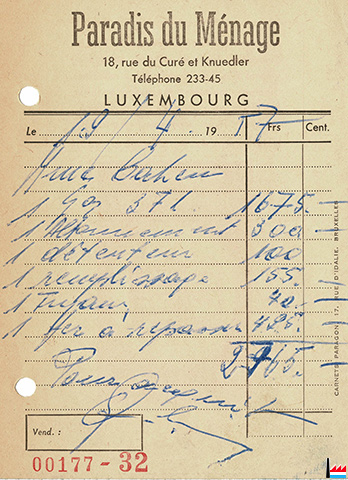 Paradis du Ménage
18, rue du Curé et Knuedler
Téléphone 233-45
LUXEMBOURG
Le 19/4. 19 57 Frs Cent.
Mme
1 371 1675.-
1 300 -
1 détenteur 100
1 remplissage 155.-
1 Tuyau 40.-
1 fer à repasser 495.-
2765.-
Pour acquit
Vend. :
00177 - 32
CARNETS PARAGON 17, RUE D'IDALIE, BRUXELLES